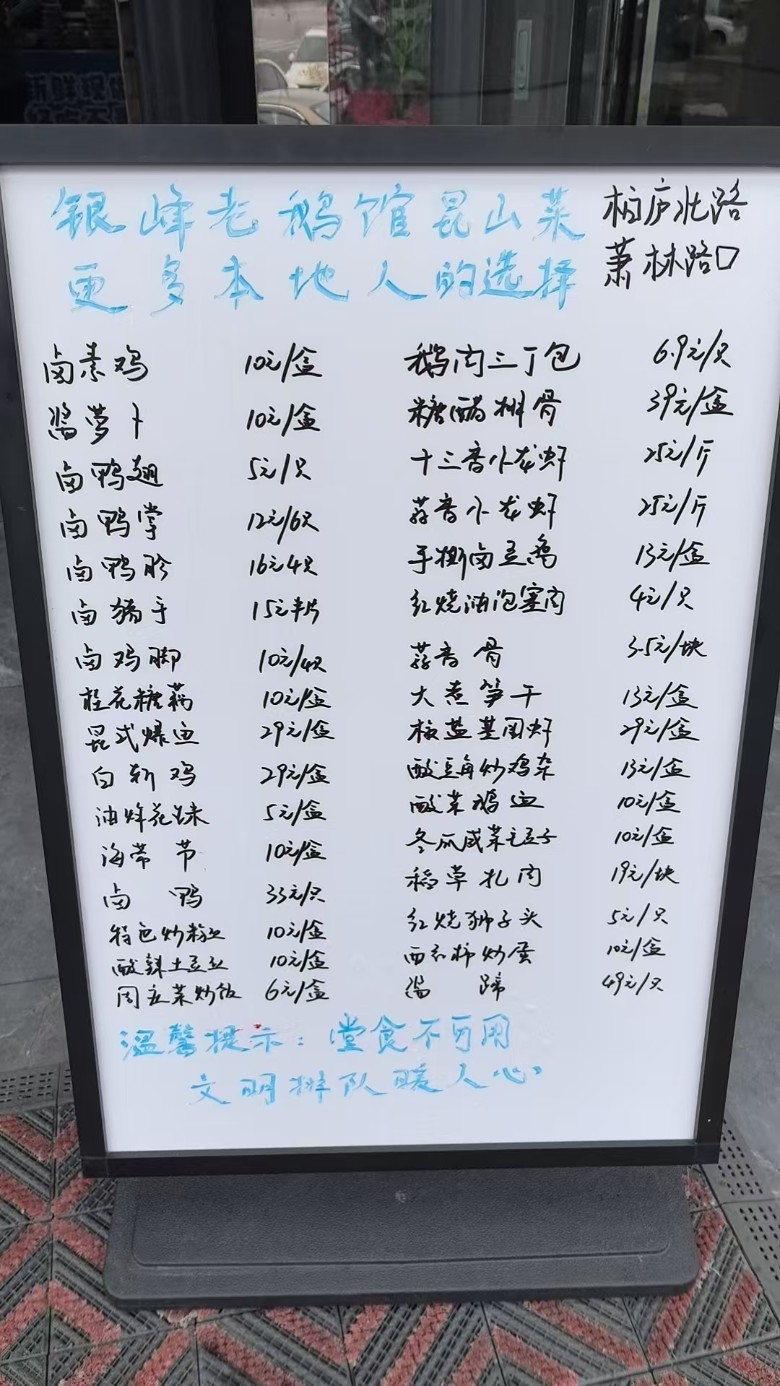 银峰老鹅馆昆山菜
更多本地人的选择
柏庐北路
萧林路口
卤素鸡 10元/盒
酱萝卜 10元/盒
卤鸭翅 5元/只
卤鸭掌 12元/6只
卤鸭胗 16元4只
卤猪手 15元半片
卤鸡脚 10元/4只
桂花糖藕 10元/盒
昆式爆鱼 29元/盒
白斩鸡 29元/盒
油炸花生米 5元/盒
海带节 10元/盒
卤鸭 33元/只
特色炒粉丝 10元/盒
酸辣土豆丝 10元/盒
周庄菜炒饭 6元/盒
鹅肉三丁包 6.9元/只
糖醋排骨 39元/盒
十三香小龙虾 25元/斤
蒜香小龙虾 25元/斤
手撕卤豆鸡 13元/盒
红烧油泡塞肉 4元/只
蒜香骨 3.5元/块
大煮笋干 13元/盒
椒盐基围虾 29元/盒
酸豆角炒鸡杂 13元/盒
酸菜鹅血 10元/盒
冬瓜咸菜毛豆子 10元/盒
稻草扎肉 19元/块
红烧狮子头 5元/只
西红柿炒蛋 10元/盒
汤蹄 49元/只
温馨提示：堂食不可用
文明排队暖人心。